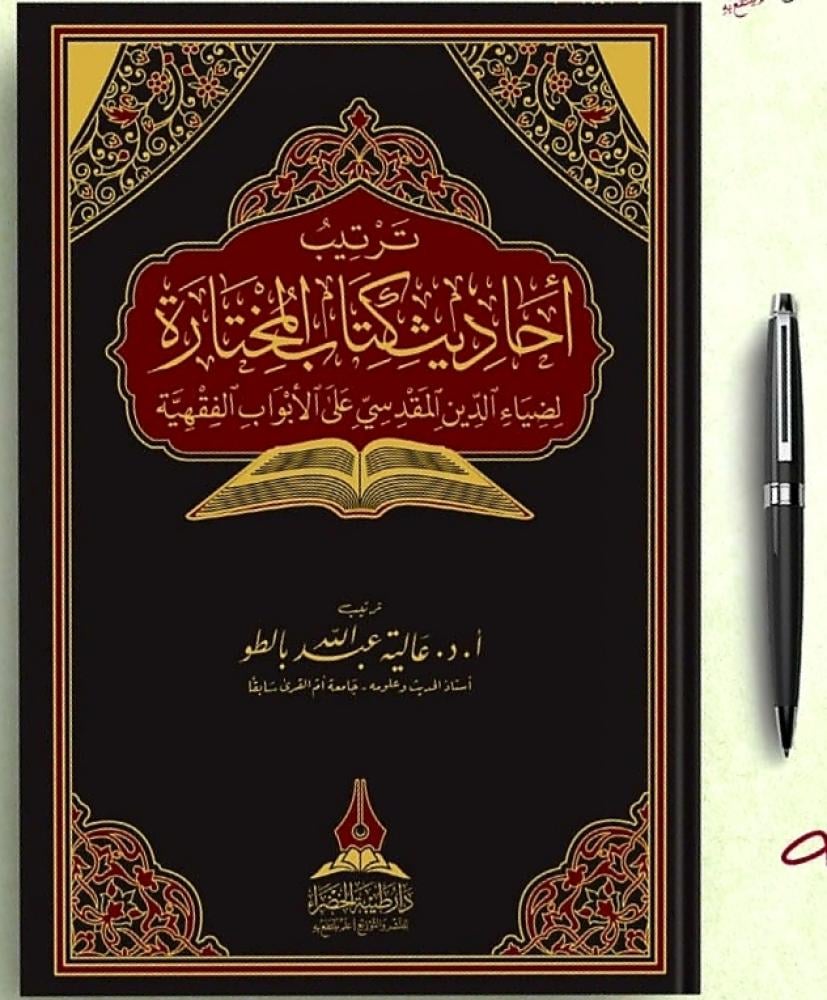 تَرْتِيبُ
أَحَادِيثِ كِتَابِ المُخْتَارَة
لِضِيَاءِ الدِّينِ المَقْدِسِيّ عَلَى الأَبْوَابِ الفِقْهِيَّة
ترتيب
أ.د. عَالية عبد الله بالطو
أستاذ الحديث وعلومه - جَامعة أم القرى سَابقًا
دَار طَيْبَة الخَضْرَاء
للنشر والتوزيع | علم ينتفع به
ينتفع به